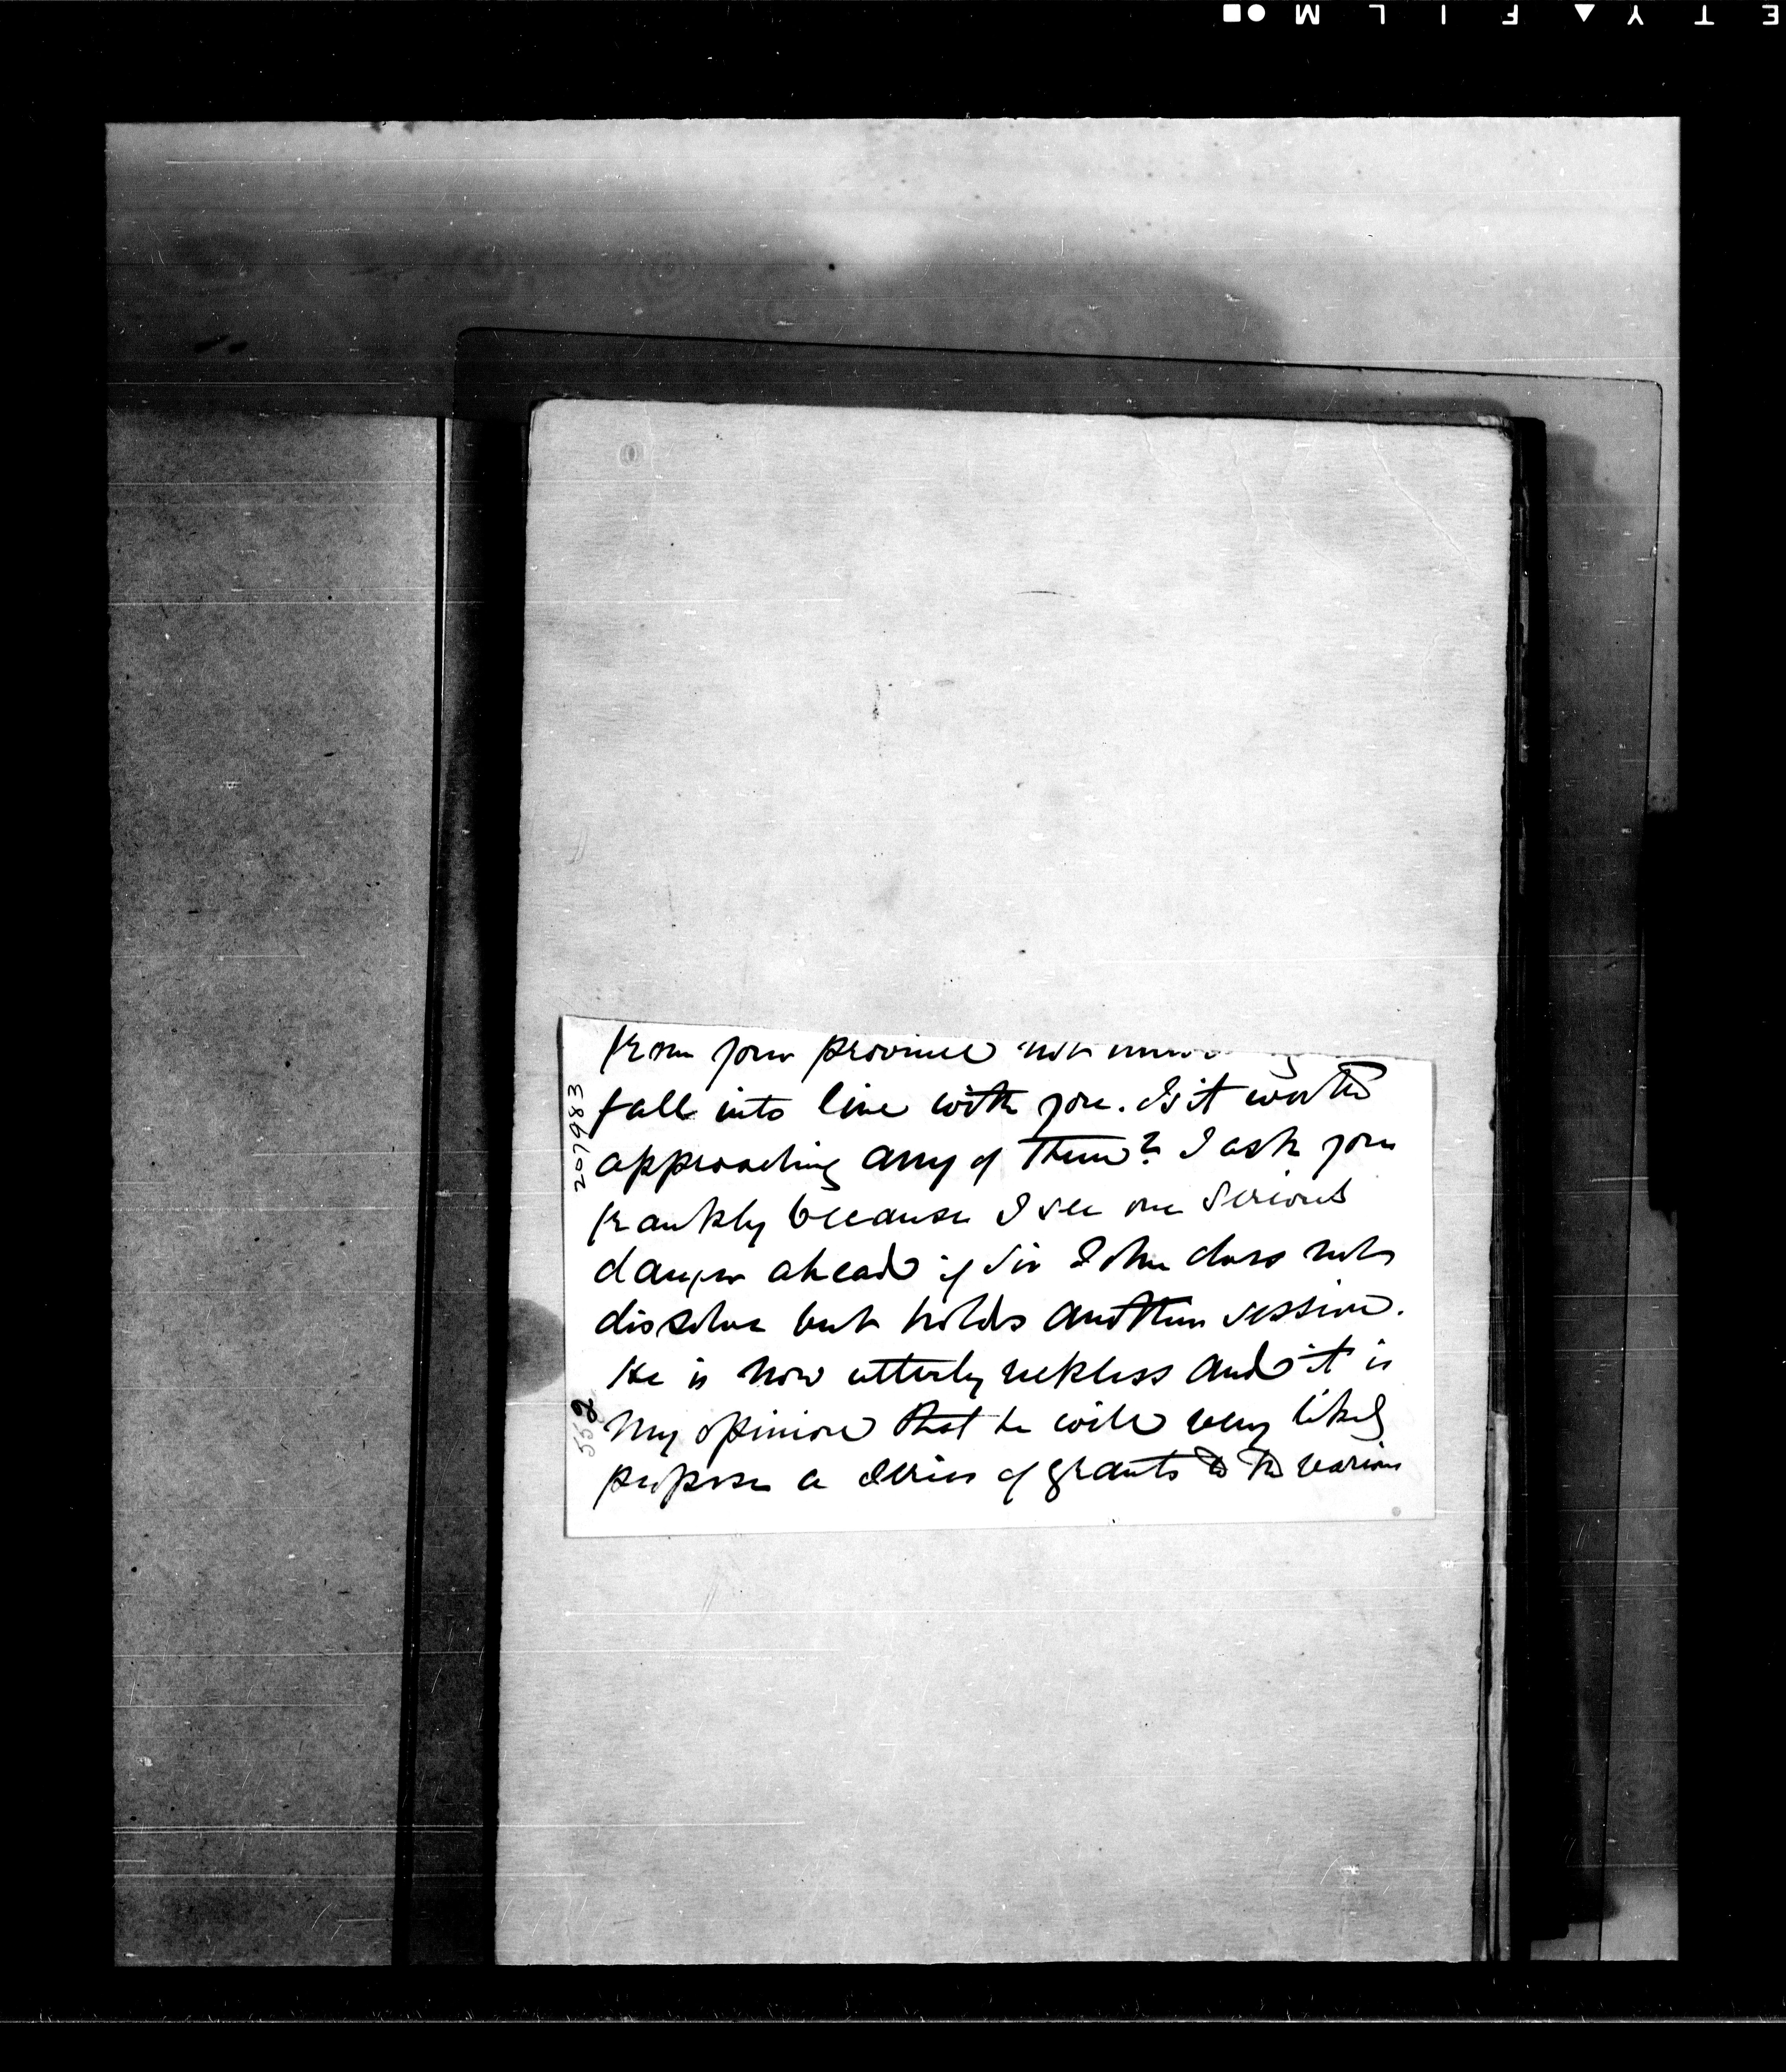 ETY FILM
from your province not
fall into line with you. Is it worth
approaching any of them? I ask you
frankly because I see one serious
danger ahead if Sir John does not
dissolve but holds another session.
He is now utterly reckless and it is
my opinion that he will very likely
propose a series of grants to the various
207983
552